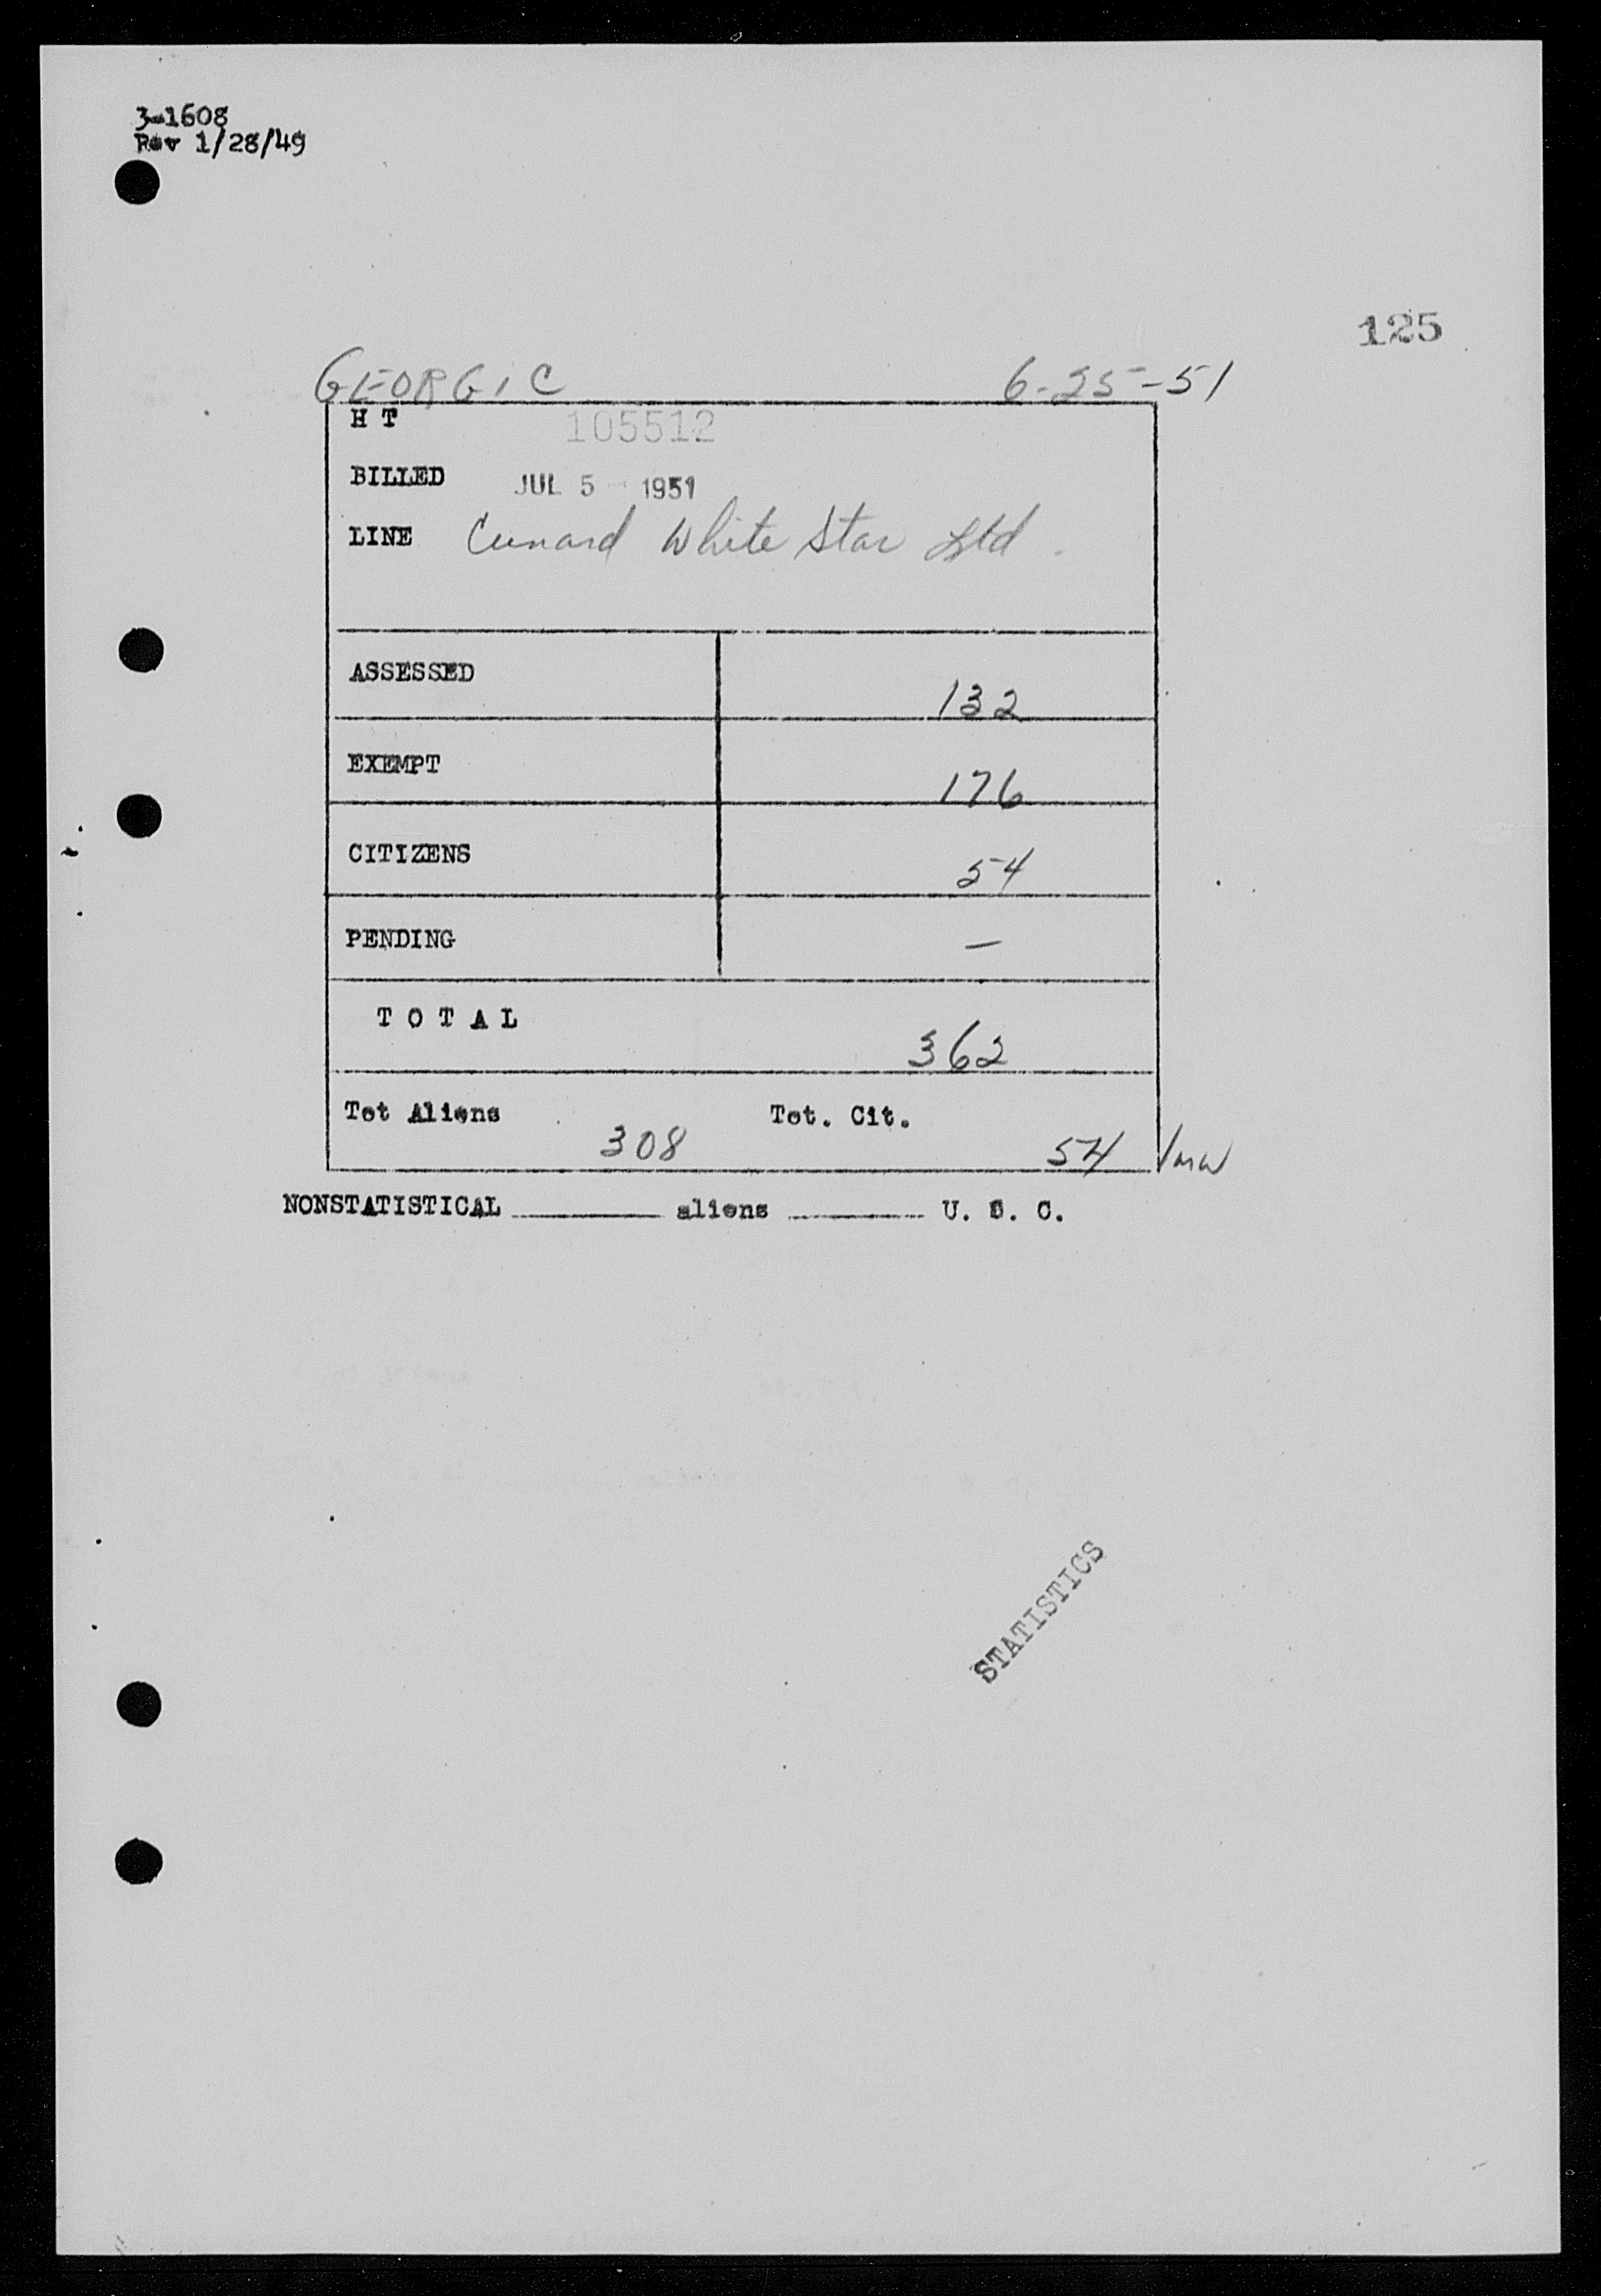 3-1608
Rev 1/28/49
125
GEORGIC 6-25-51
H T 105512
BILLED JUL 5 1951
LINE Cunard White Star Ltd.
ASSESSED 132
EXEMPT 176
CITIZENS 54
PENDING —
T O T A L 362
Tot Aliens 308 Tot. Cit. 54
NONSTATISTICAL ______ aliens ______ U. S. C.
STATISTICS